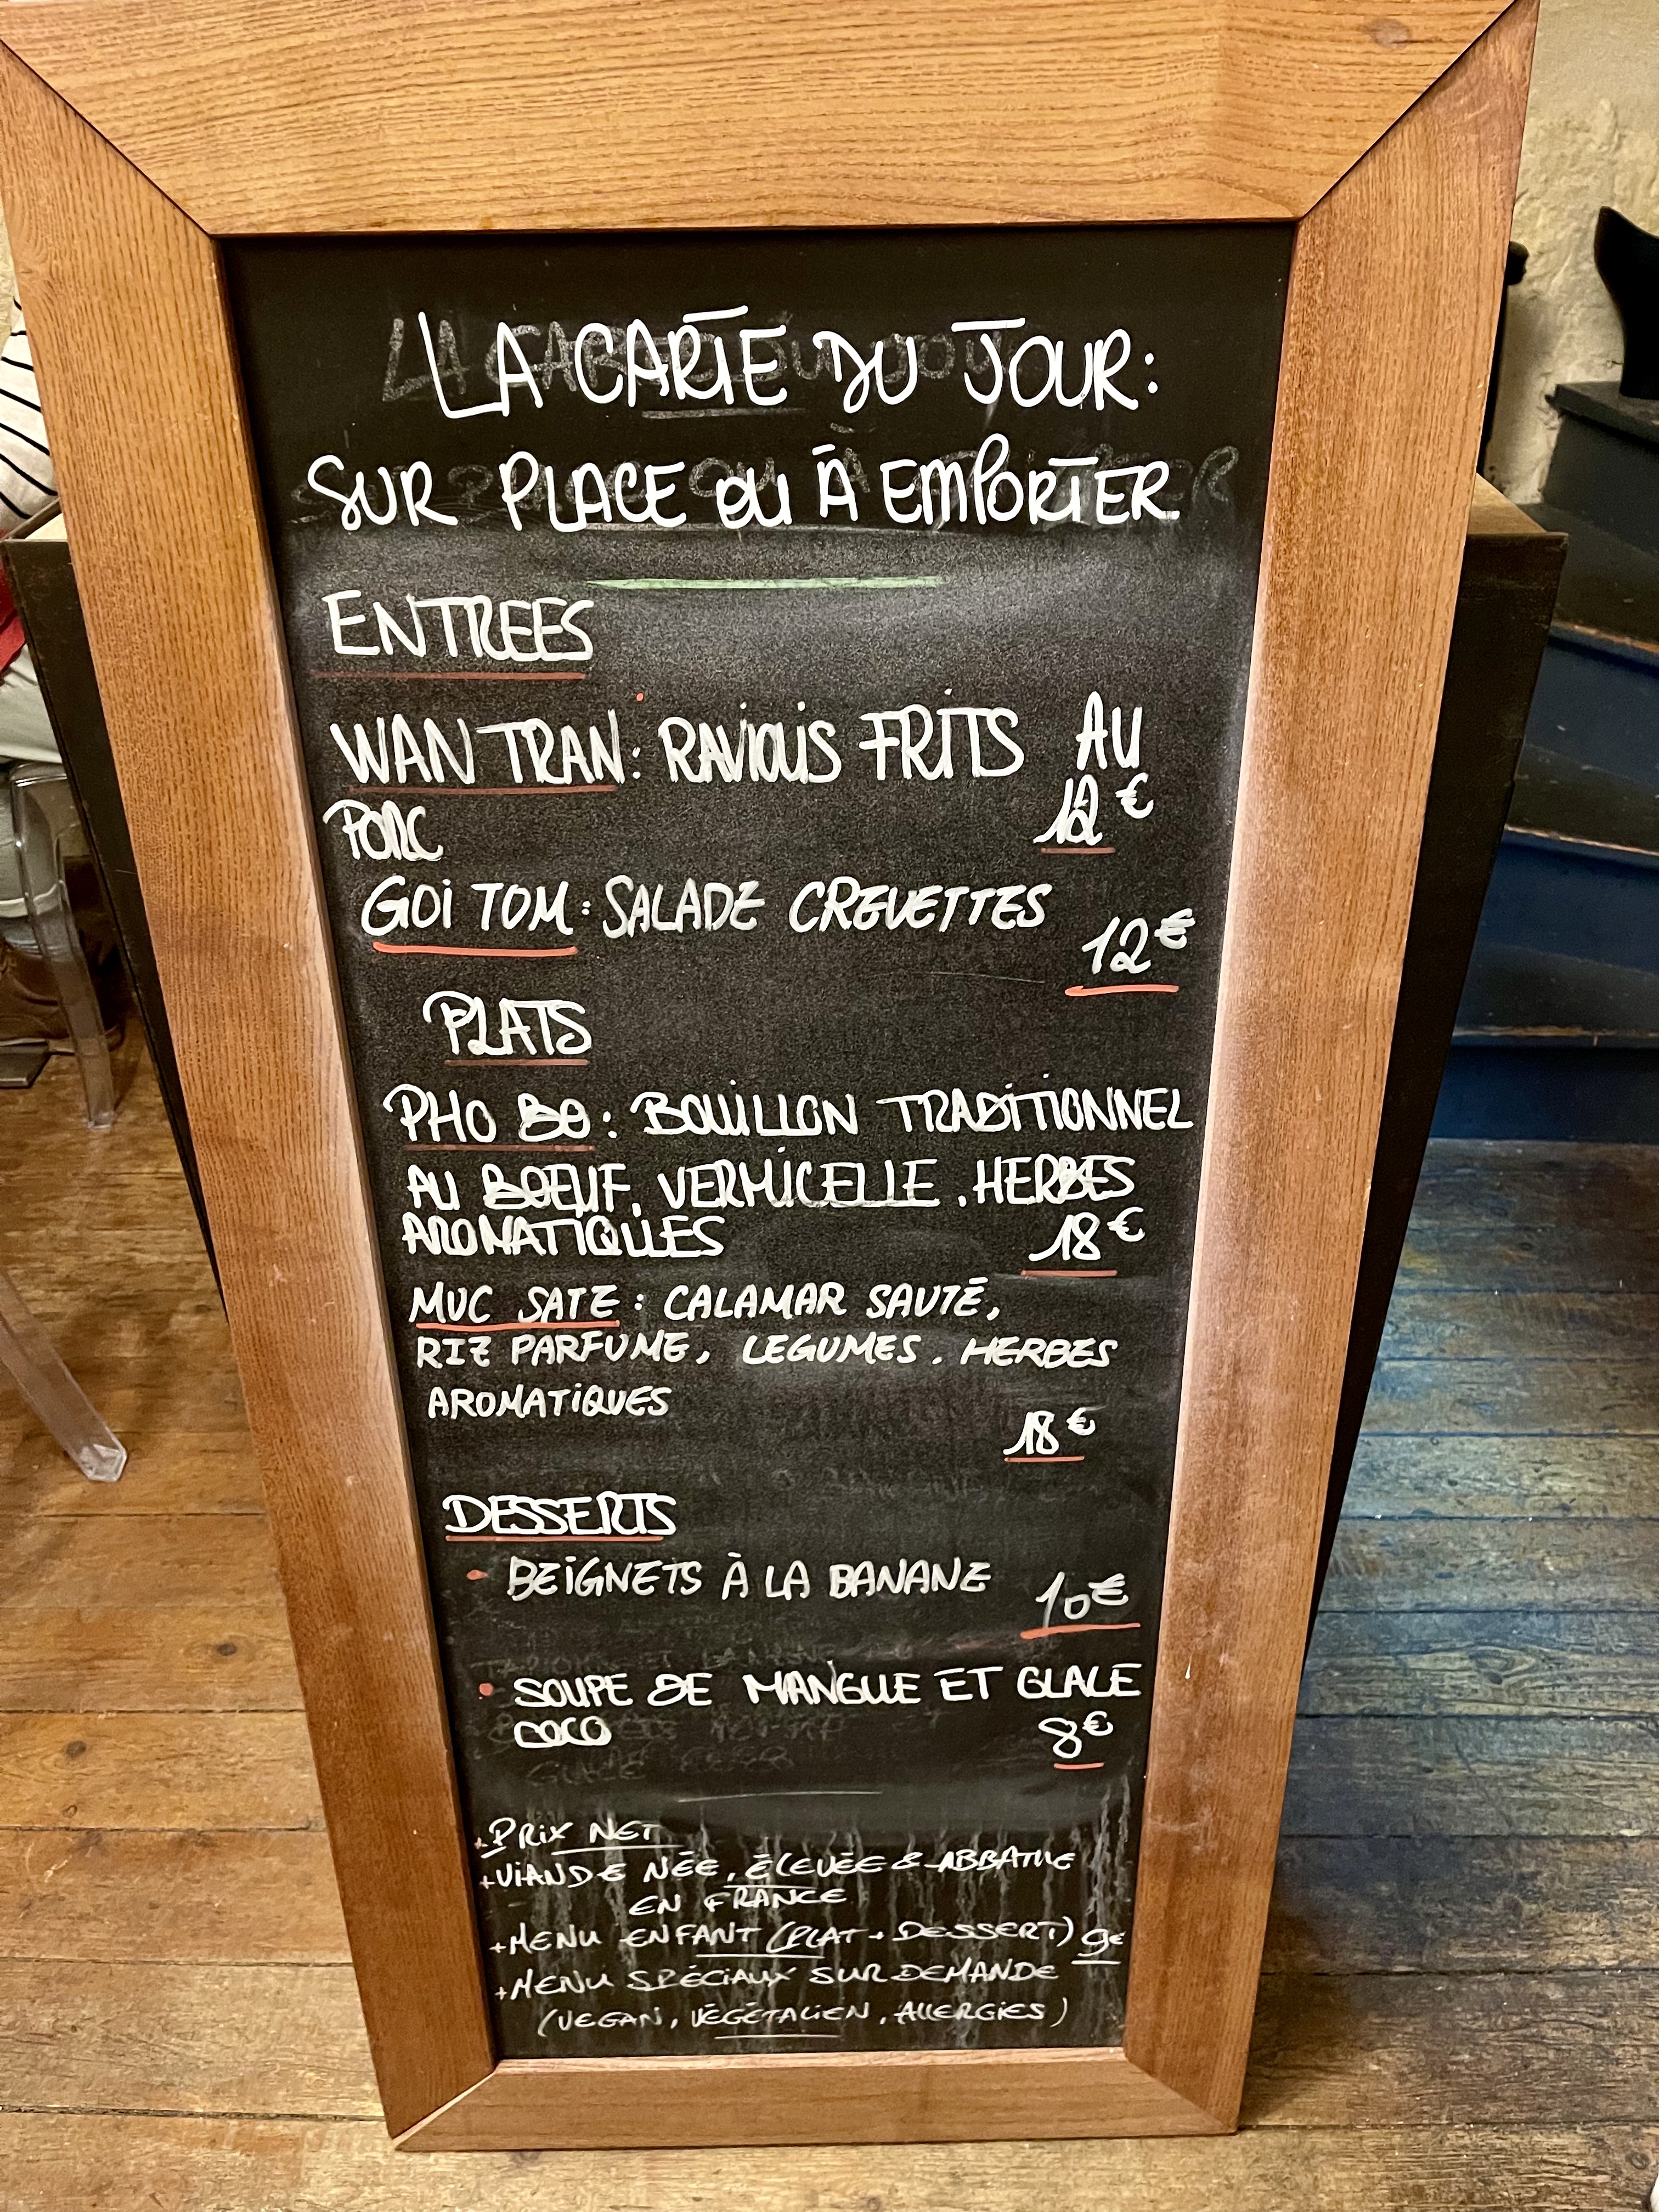 LA CARTE DU JOUR:
SUR PLACE OU À EMPORTER
ENTREES
WAN TRAN: RAVIOLIS FRITS AU
PORC 12€
GOI TOM: SALADE CREVETTES
12€
PLATS
PHO BO: BOUILLON TRADITIONNEL
AU BOEUF, VERMICELLE, HERBES
AROMATIQUES 18€
MUC SATE: CALAMAR SAUTÉ,
RIZ PARFUME, LEGUMES, HERBES
AROMATIQUES
18€
DESSERTS
• BEIGNETS À LA BANANE 10€
• SOUPE DE MANGUE ET GLACE
COCO 8€
+PRIX NET
+VIANDE NÉE, ÉLEVÉE & ABBATUE
EN FRANCE
+MENU ENFANT (PLAT + DESSERT) 9€
+MENU SPÉCIAUX SUR DEMANDE
(VEGAN, VÉGÉTALIEN, ALLERGIES)